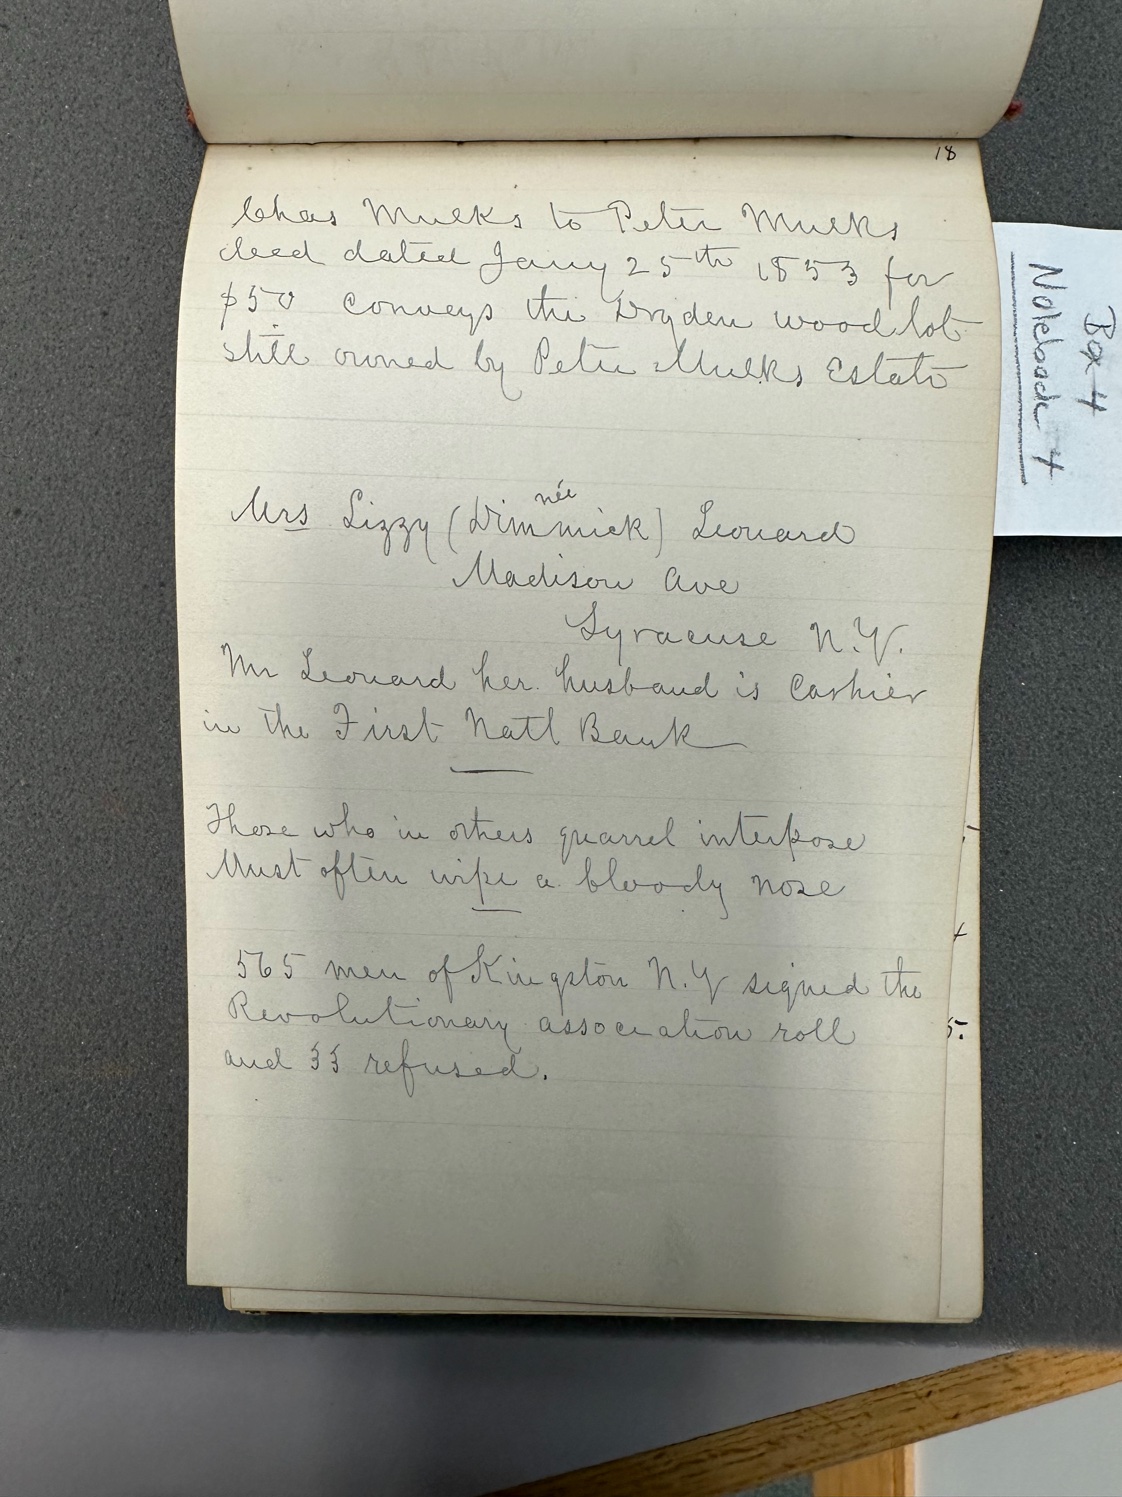 18
Chas Mulks to Peter Mulks
deed dated Jany 25th 1853 for
$50 conveys the Dryden wood lot
still owned by Peter Mulks Estate
née
Mrs Lizzy (Dimmick) Leonard
Madison Ave
Syracuse N.Y.
Mr Leonard her husband is Cashier
in the First Natl Bank
Those who in others quarrel interpose
Must often wipe a bloody nose
565 men of Kingston N.Y signed the
Revolutionary association roll
and 33 refused.
5.
Box 4
Notebook 4